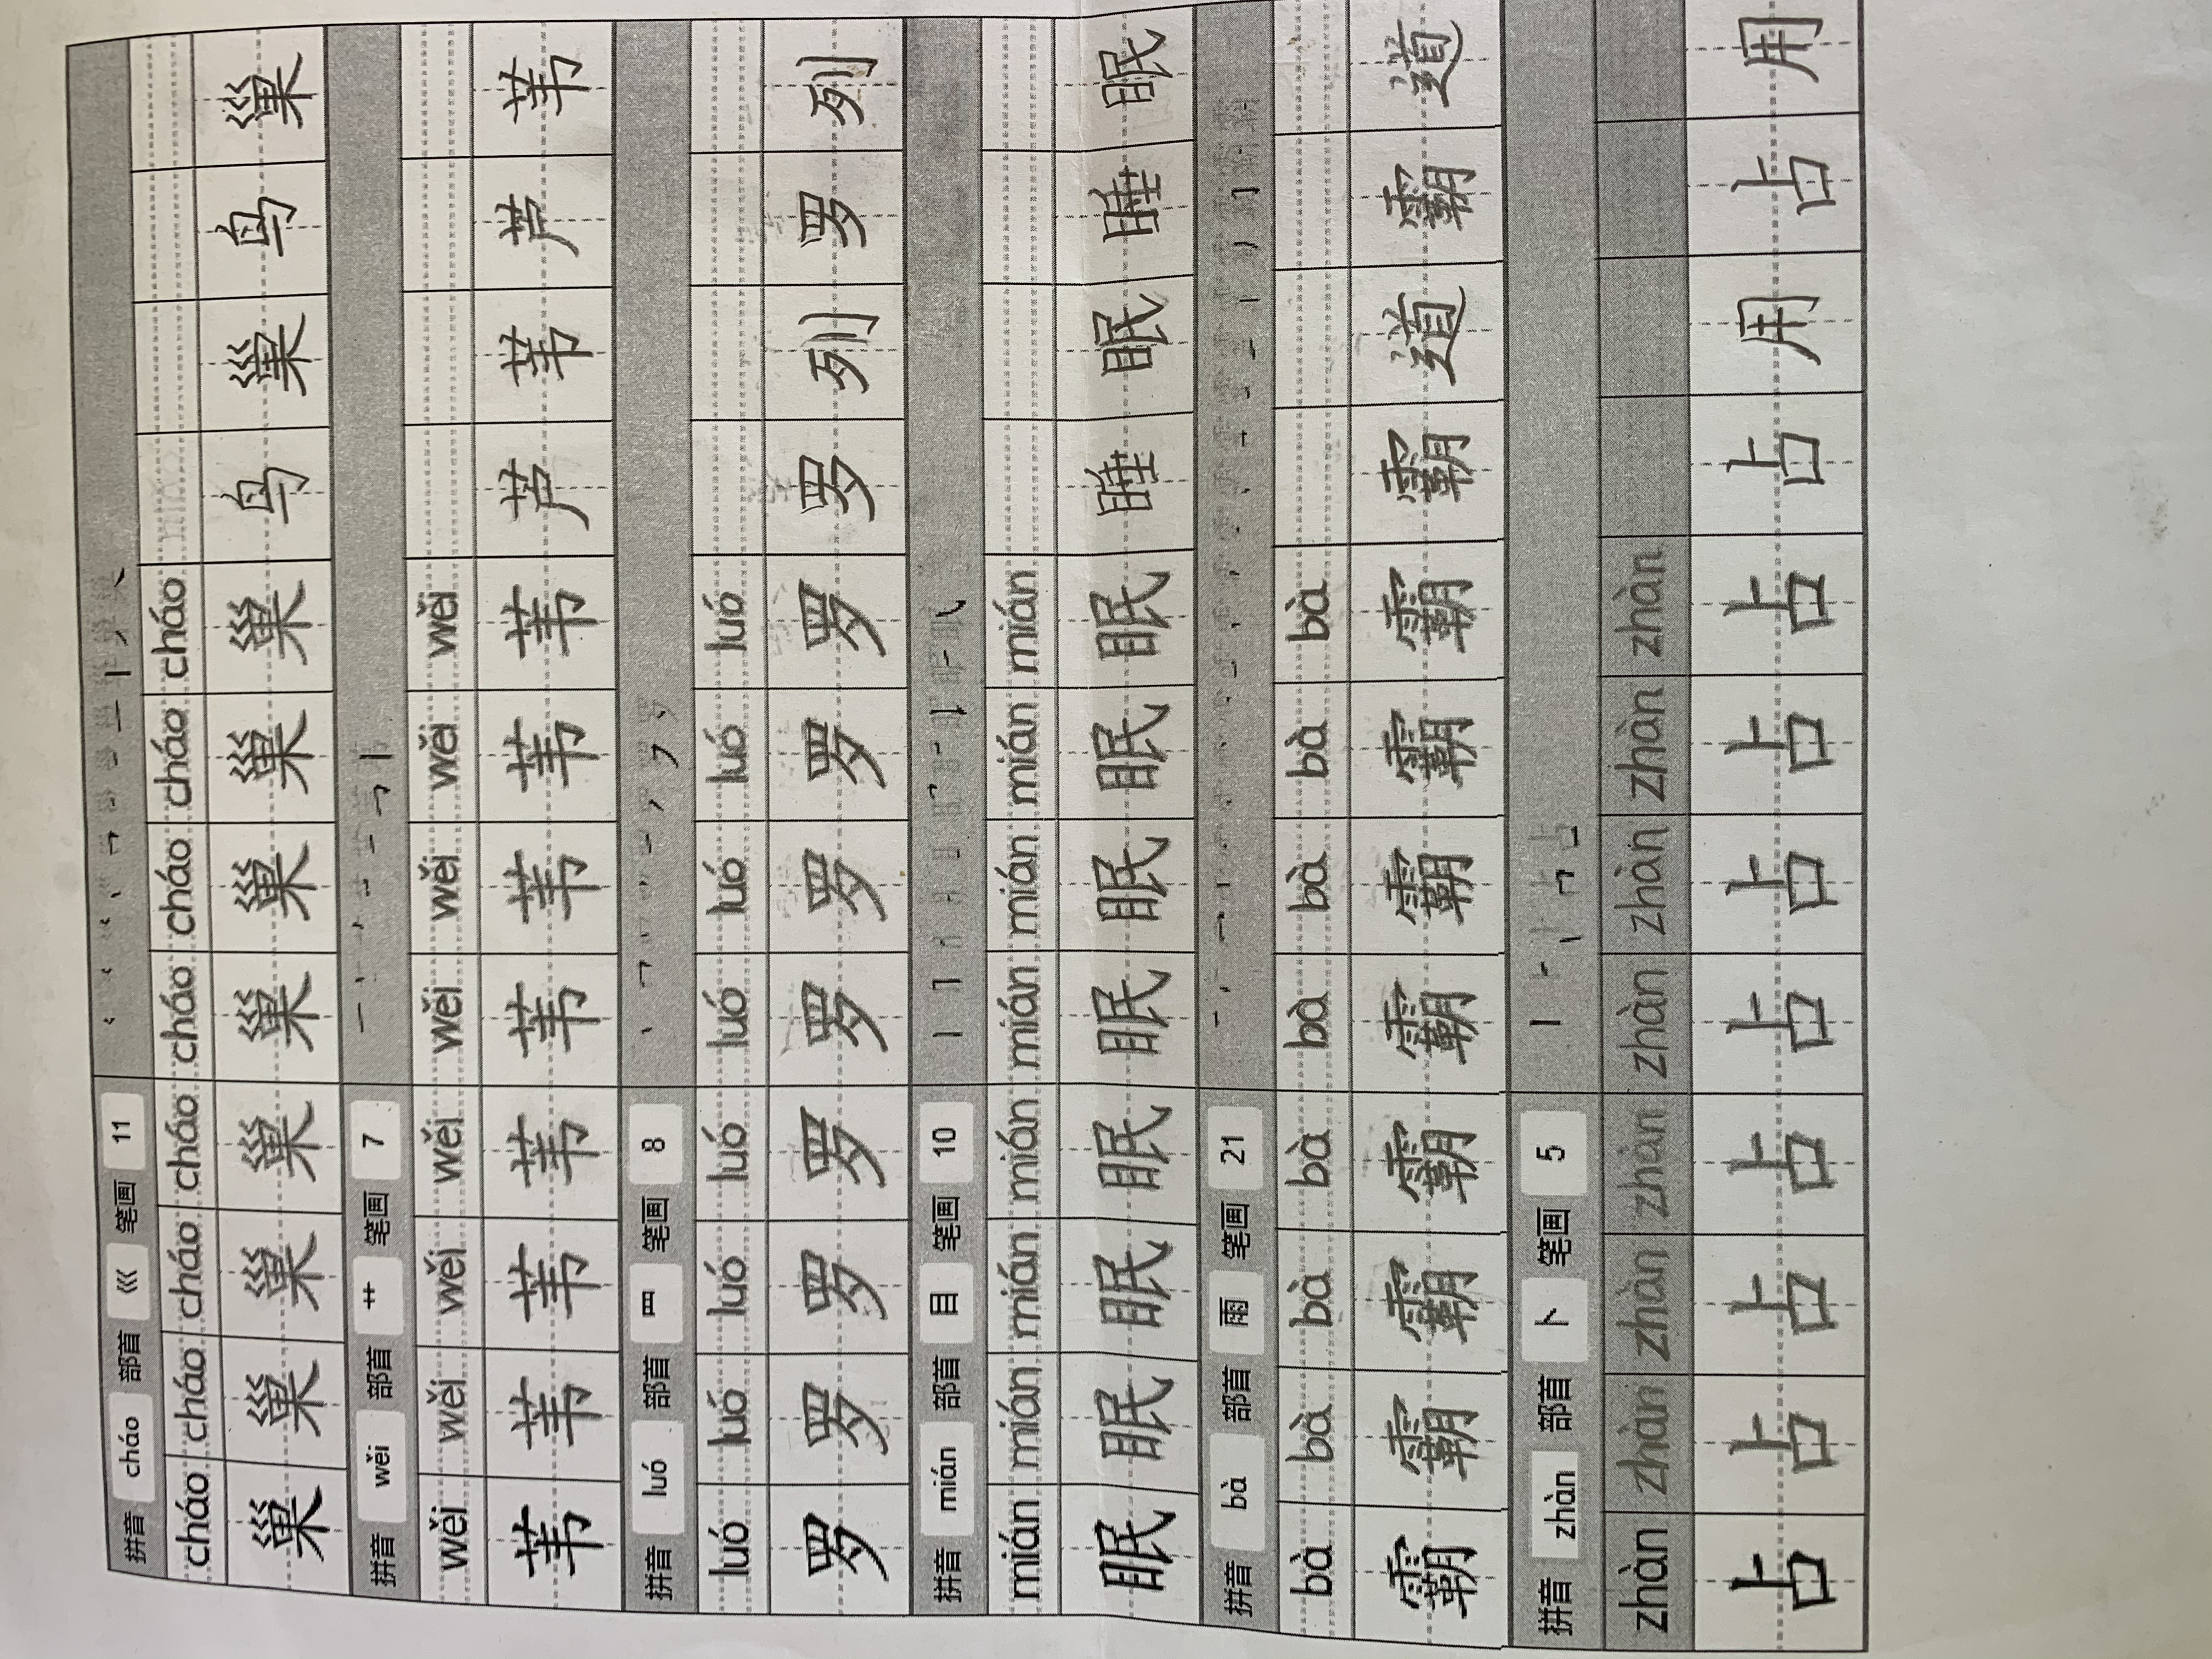 拼音 cháo 部首 巛 笔画 11
cháo cháo cháo cháo cháo cháo cháo cháo
巢 巢 巢 巢 巢 巢 巢 巢 鸟 巢 鸟 巢
拼音 wěi 部首 艹 笔画 7
wěi wěi wěi wěi wěi wěi wěi wěi
苇 苇 苇 苇 苇 苇 苇 苇 芦 苇 芦 苇
拼音 luó 部首 罒 笔画 8
luó luó luó luó luó luó luó luó
罗 罗 罗 罗 罗 罗 罗 罗 罗 列 罗 列
拼音 mián 部首 目 笔画 10
mián mián mián mián mián mián mián mián
眠 眠 眠 眠 眠 眠 眠 眠 睡 眠 睡 眠
拼音 bà 部首 雨 笔画 21
bà bà bà bà bà bà bà bà
霸 霸 霸 霸 霸 霸 霸 霸 霸 道 霸 道
拼音 zhàn 部首 卜 笔画 5
zhàn zhàn zhàn zhàn zhàn zhàn zhàn zhàn
占 占 占 占 占 占 占 占 占 用 占 用